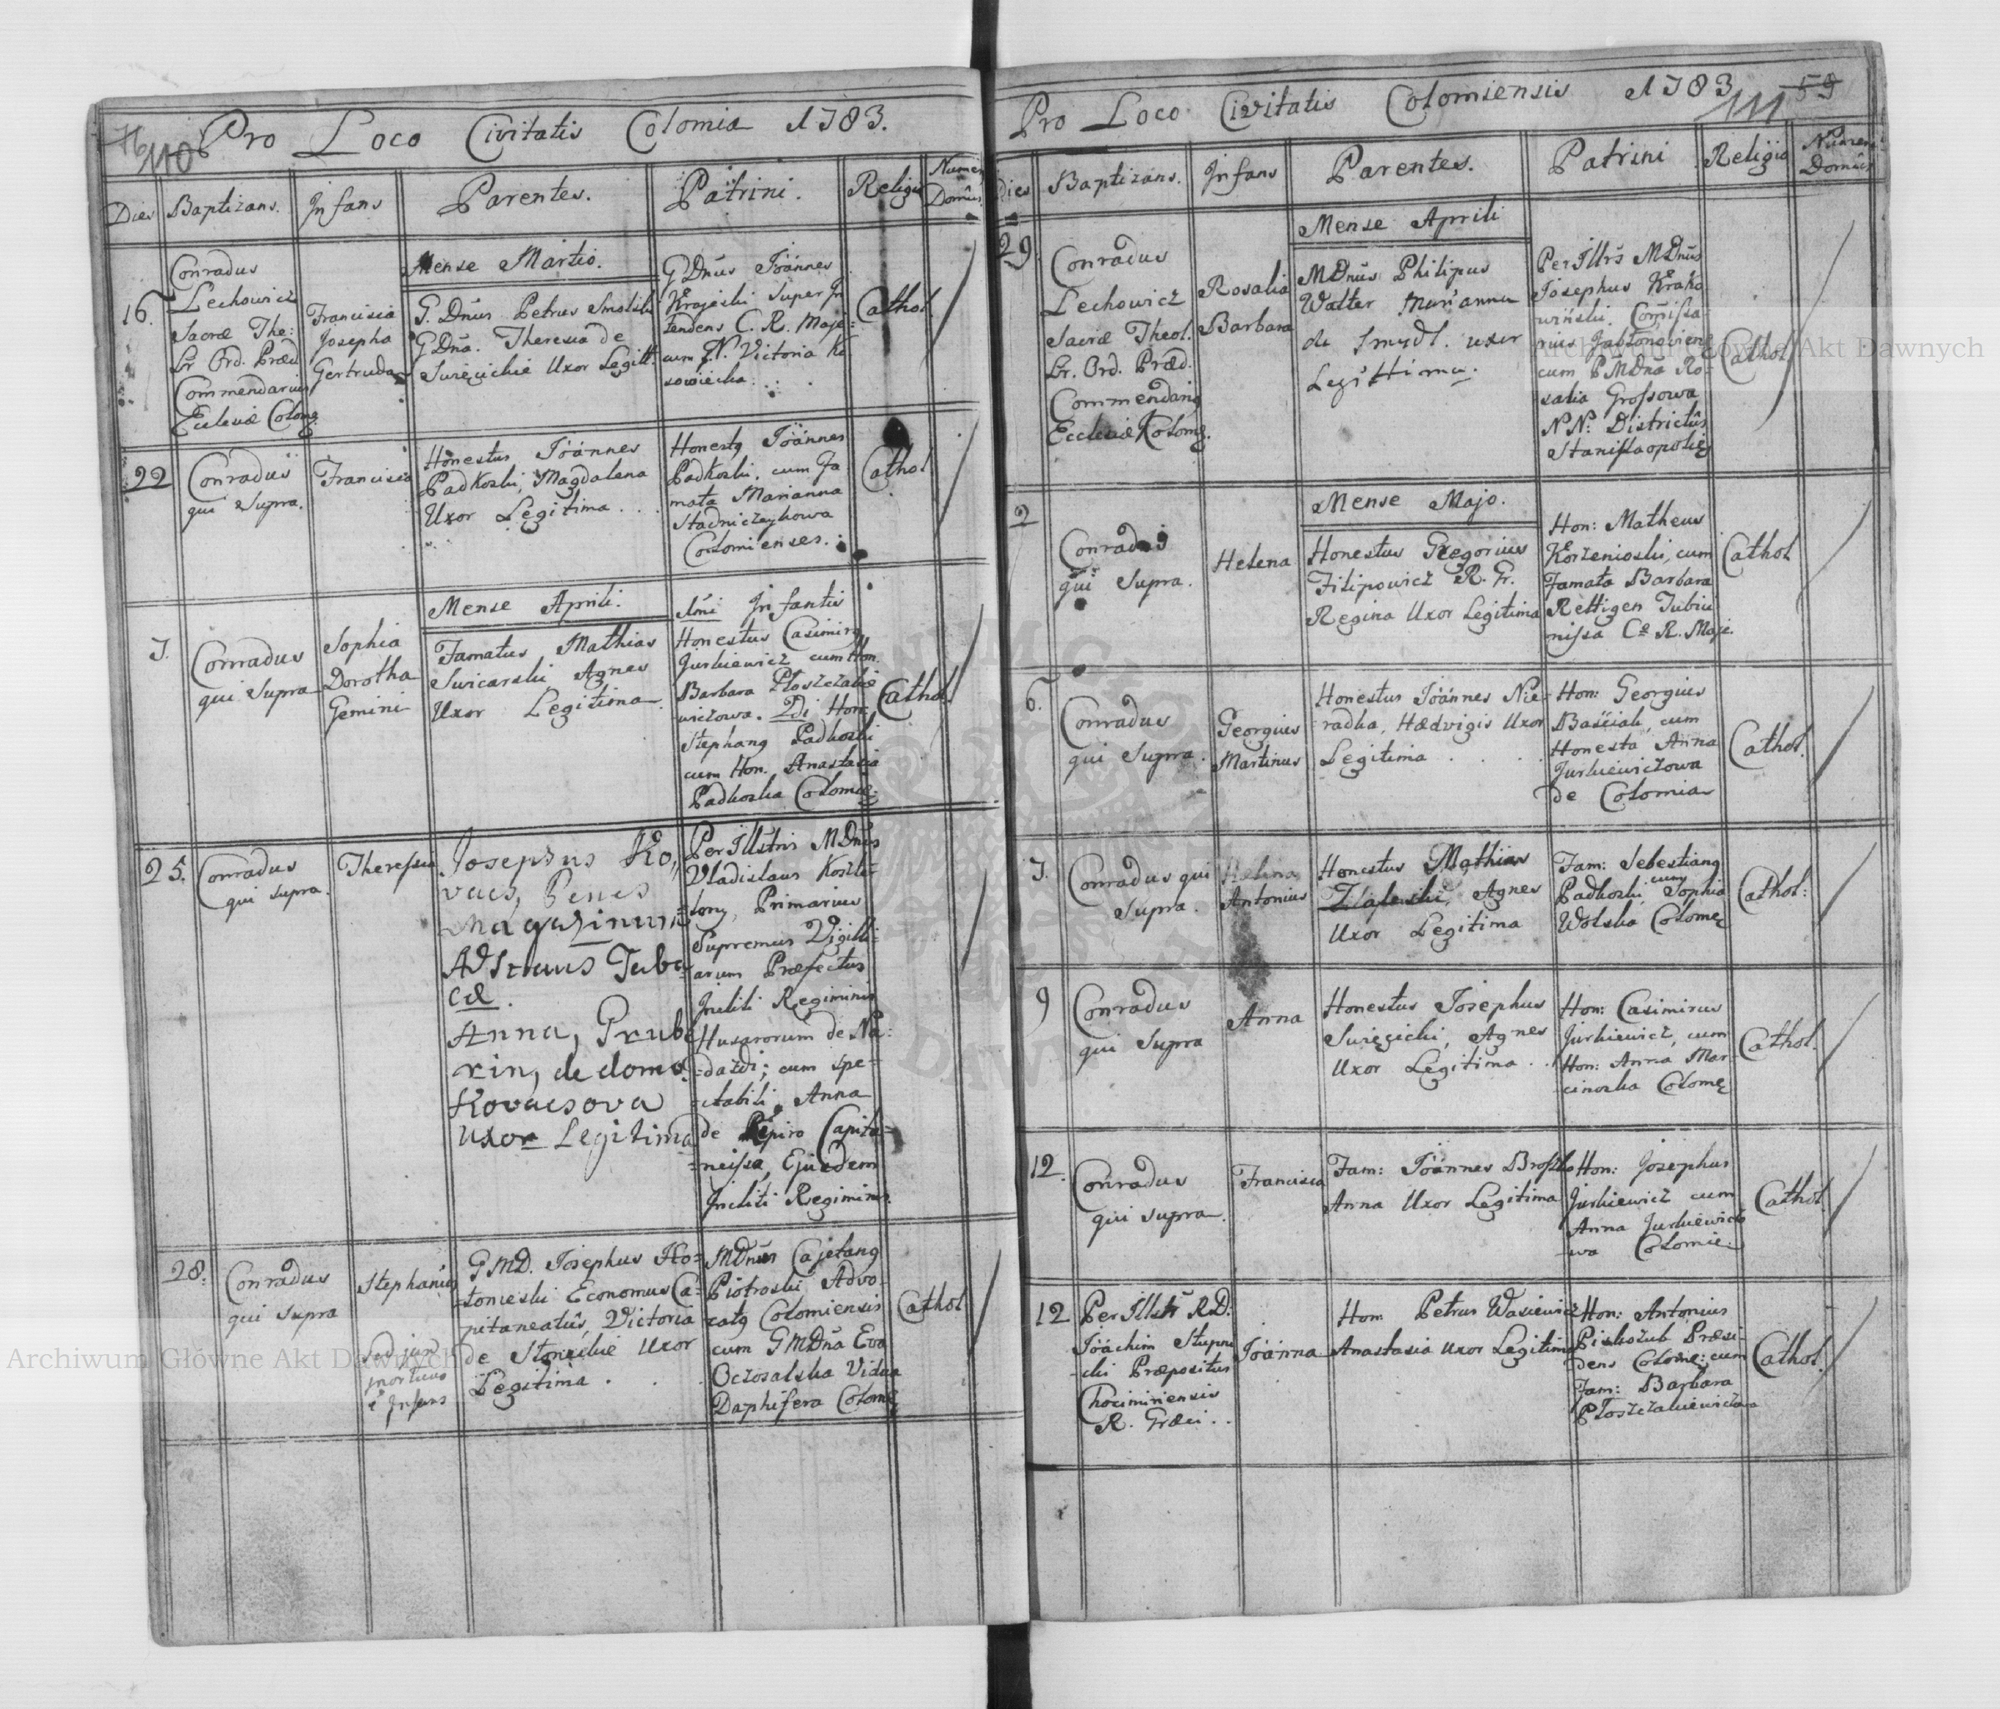 110 Pro Loco Civitatis Colomia 1783.
Dies
Baptizans.
Infans
Parentes.
Patrini.
Religio
Numer
Domûs
Mense Martio.
16.
Conradus
Lechowicz
Sacræ The:
Lr Ord. Præd.
Commendarius
Ecclesiæ Colome.
Francisca
Josepha
Gertruda
G. Dnus Petrus
G Dña. Theresia de
Surezickie Uxor Legitt.
G Dnus Joannes
Krajeski Super In
tendens C. R. Maje:
cum N. Victoria Ko
sowiecka
Cathol.
22
Conradus
qui Supra.
Francisca
Honestus Joánnes
Padkoski, Magdalena
Uxor Legitima . . .
Honestg Joánnes
Padkoski, cum Fa
mata Marianna
Stadniczeykowa
Colomienses.
Cathol.
Mense Aprili.
7.
Conradus
qui Supra
Sophia
Dorotha
Gemini
Famatus Mathias
Swicarski Agnes
Uxor Legitima.
1mi Infantis
Honestus Casimirg
Jurkiewicz cum Hon.
Barbara Płoszczakie
wiczowa. 2di Hon:
Stephang Padkoski
cum Hon. Anastasia
Padkoska Colome:
Cathol.
25.
Conradus
qui supra.
Theressia
Josephus Ko,
vacs, Penes
Magazinum
Adstans Taba
cæ.
Anna,
xin, de domo
Kovacsova
Uxor Legitima
Per Illustris MDnus
Vladislaus Koszto
lony, Primarius
Supremus Vigilli:
arum Præfectus
Incliti Regiminis
Husarorum de Na:
dazdi; cum spe=
ctabili, Anna
de Capita=
neissa, Ejusdem
Incliti Regiminis.
28.
Conradus
qui supra
Stephanus
sed jam
mortuus
é Infans
GMD. Josephus Ho=
łonieski Economus Ca=
pitaneatûs, Victoria
de Uxor
Legitima . .
MDnus Cajetang
Piotroski Advo:
catg Colomiensis
cum GMDña Eva
Oczosalska Vidua
Dapifera Colome
Cathol
Pro Loco Civitatis Colomiensis 1783
111 59
Dies
Baptizans.
Infans
Parentes.
Patrini
Religio
Numeri
Domûs
Mense Aprili
29.
Conradus
Lechowicz
Sacræ Theol.
Lr. Ord. Præd.
Commendarig
Ecclesiæ Kolome.
Rosalia
Barbara
MDnus Philipus
Walter Marianna
de Smydl. uxor
Legittima.
Per Illrs MDnus
Josephus Krako
wiński, Comissa
rius Jabłonovien
cum PMDna Ro=
salia Grossowa
NN. Districtûs
Stanislaopolie
Cathol.
Mense Majo.
2
Conradus
qui Supra.
Helena
Honestus Gregorius
Filipowicz R. Gr.
Regina Uxor Legitima
Hon: Matheus
Korzenioski, cum
Famata Barbara
Rettigen Tubici
nissa Cæ R. Maje.
Cathol
6.
Conradus
qui Supra.
Georgius
Martinus
Honestus Joánnes Nie=
radka, Hædvigis Uxor
Legitima . . .
Hon: Georgius
Baściak, cum
Honesta Anna
Jurkiewiczowa
de Colomia
Cathol.
7.
Conradus qui
Supra.
Antonius
Honestus Mathias
Agnes
Uxor Legitima
Fam: Sebestiang
Padkoski, cum Sophia
Wolska Colome
Cathol:
9
Conradus
qui Supra
Anna
Honestus Josephus
Surezicki, Agnes
Uxor Legitima . .
Hon: Casimirus
Jurkiewicz, cum
Hon: Anna Mar=
cinoska Colome
Cathol.
12.
Conradus
qui supra.
Francisca
Fam: Joánnes
Anna Uxor Legitima
Hon: Josephus
Jurkiewicz cum
Anna Jurkiewiczo
wa Colomie:
Cathol.
12
Per Illstr RD.
Joáchim Stupni
cki Præpositus
Chociminensis
R. Græci . .
Joánna
Hon: Petrus Wasiewicz
Anastasia uxor Legitima
Hon: Antonius
Piskozub Præsi=
dens Colome: cum
Fam: Barbara
Płoszczakiewiczowa
Cathol.
Archiwum Główne Akt Dawnych
Archiwum Główne Akt Dawnych